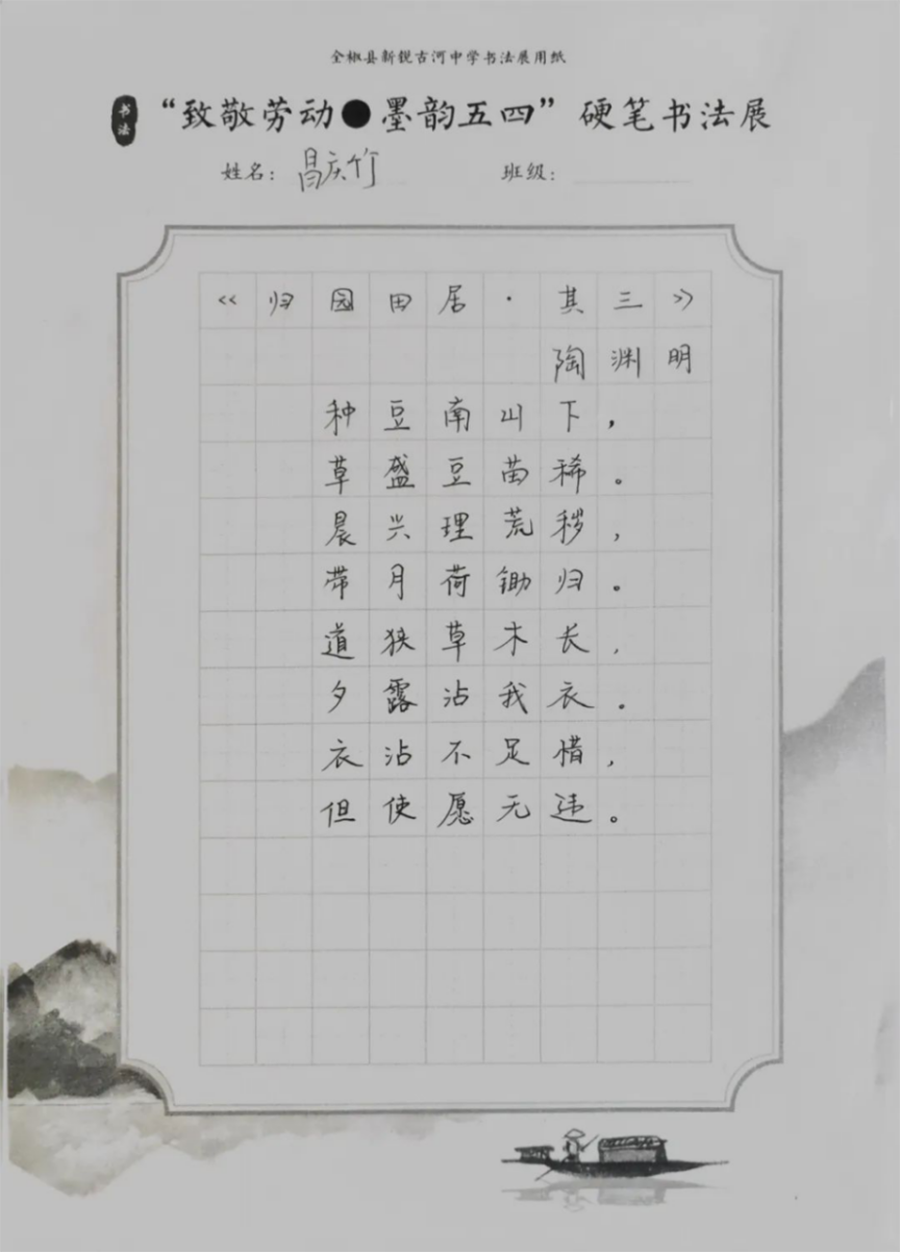 全椒县新锐古河中学书法展用纸
书法
“致敬劳动●墨韵五四”硬笔书法展
姓名：昌庆竹 班级：
《归园田居·其三》
陶渊明
种豆南山下，
草盛豆苗稀。
晨兴理荒秽，
带月荷锄归。
道狭草木长，
夕露沾我衣。
衣沾不足惜，
但使愿无违。